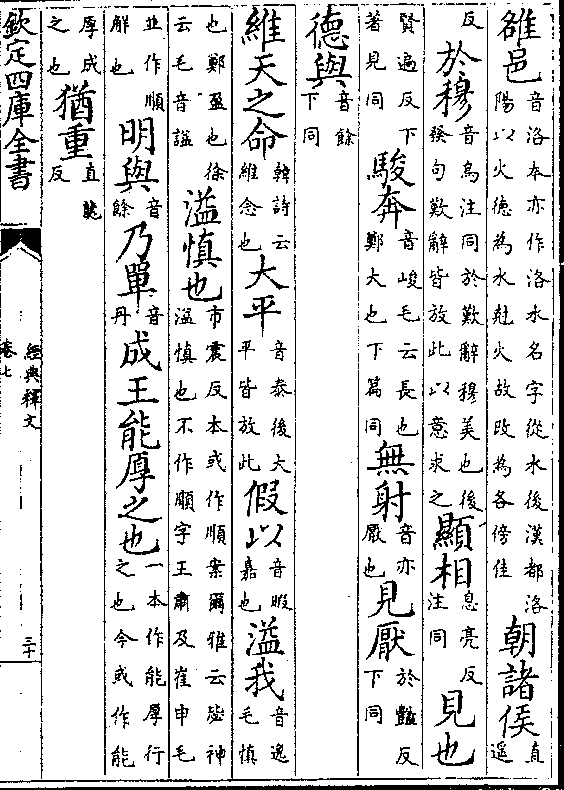 雒邑音洛本亦作洛水名字從水後漢都洛陽以火德為水尅火故改為各傍佳朝諸侯直遥
反於穆音烏注同於歎辭穆美也後發句歎辭皆放此以意求之顯相息亮反注同見也
賢遍反下著見同駿奔音峻毛云長也鄭大也下篇同無射音亦厭也見厭於豔反下同
德與音餘下同
維天之命韓詩云維念也大平音泰後大平皆放此假以音暇嘉也溢我音逸毛慎
也鄭盈也徐云毛音諡溢慎也市震反本或作順案爾雅云毖神溢慎也不作順字王肅及崔申毛
並作順解也明與音餘乃單音丹成王能厚之也一本作能厚行之也今或作能
厚成之也猶重直龍反
欽定四庫全書
經典釋文
卷七
三十